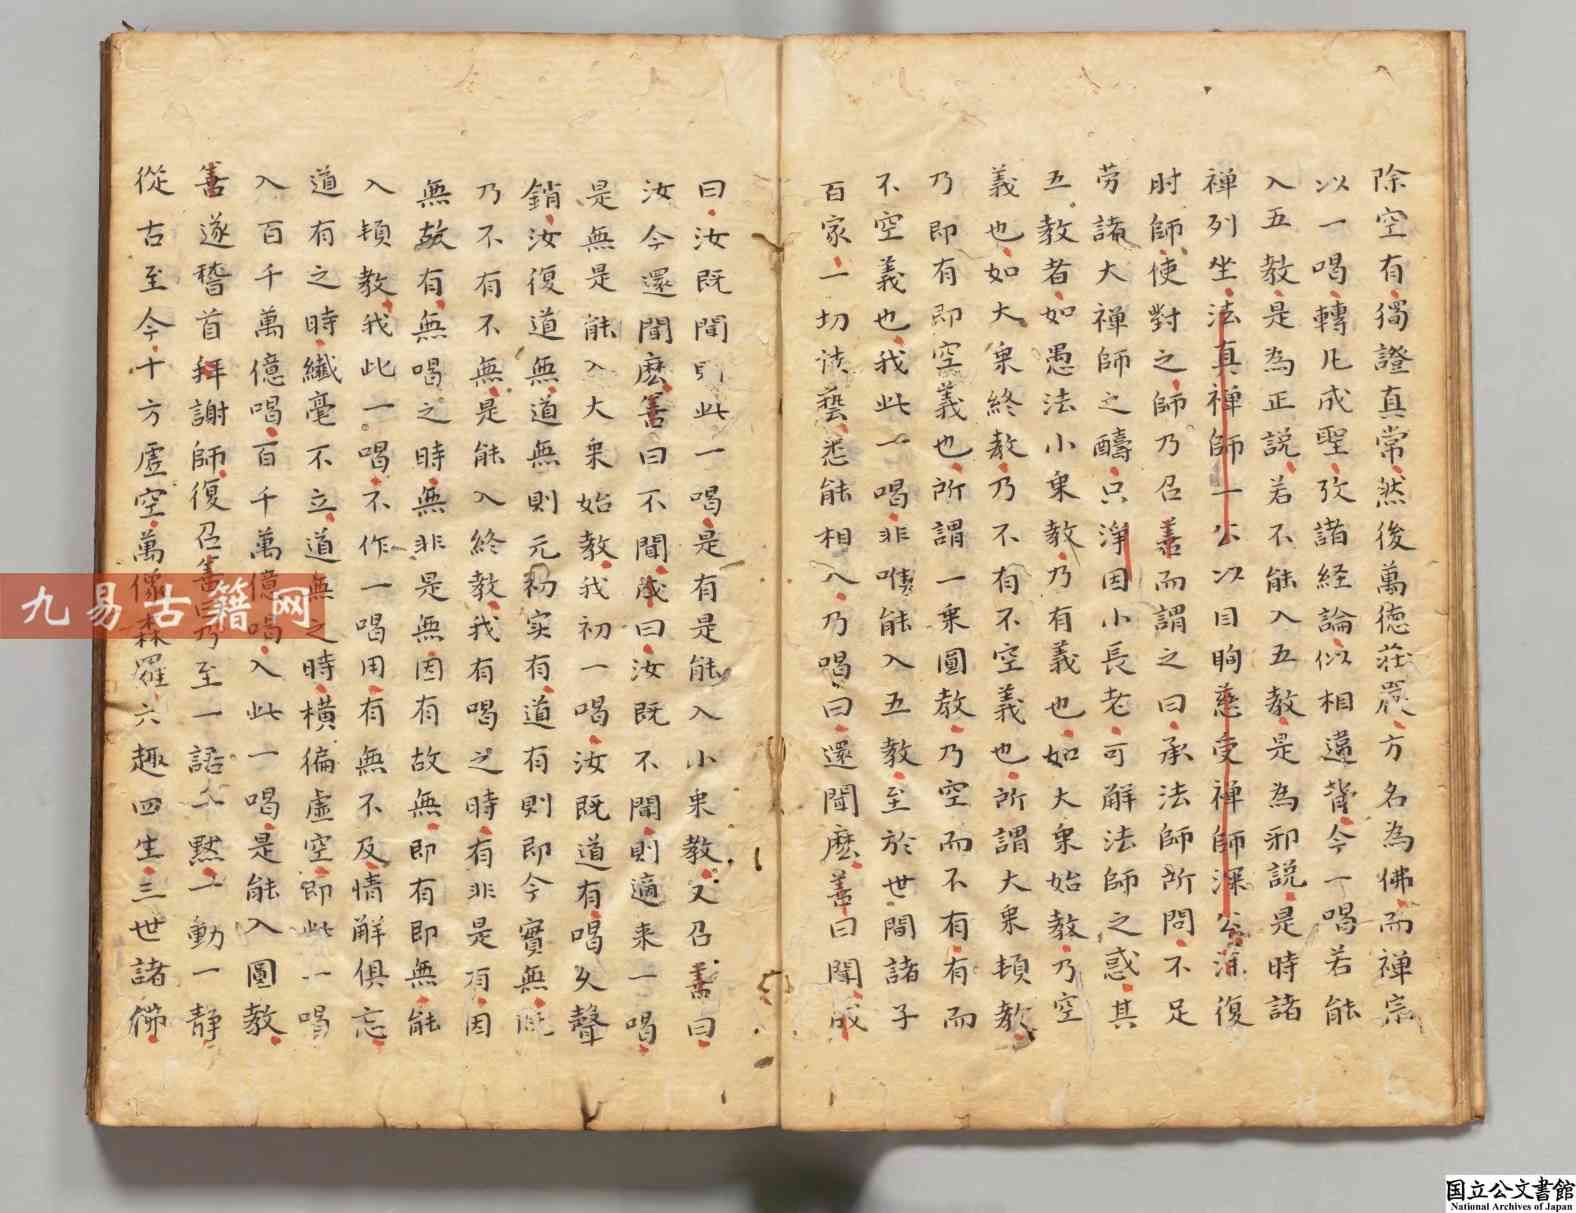 除空有獨證真常然後萬德莊嚴方名為佛而禅宗
以一喝轉凡成聖攷諸経論似相違背今一喝若能
入五教是為正説若不能入五教是為邪説是時諸
禅列坐法真禅師一公以目眴慈受禅師深公深復
肘師使對之師乃召善而謂之曰承法師所問不足
劳諸大禅師之醻只淨因小長老可解法師之惑其
五教者如愚法小乗教乃有義也如大乗始教乃空
義也如大乗終教乃不有不空義也所謂大乗頓教
乃即有即空義也所謂一乗圓教乃空而不有有而
不空義也我此一喝非唯能入五教至於世間諸子
百家一切技藝悉能相入乃喝曰還聞麽善曰聞成
曰汝既聞此一喝是有是能入小乗教又召善曰
汝今還聞麽善曰不聞成曰汝既不聞則適来一喝
是無是能入大乗始教我初一喝汝既道有喝久聲
銷汝復道無道無則元初实有道有則即今實無既
乃不有不無是能入終教我有喝之時有非是有因
無故有無喝之時無非是無因有故無即有即無能
入頓教我此一喝不作一喝用有無不及情解俱忘
道有之時纎毫不立道無之時横徧虚空即此一喝
入百千萬億喝百千萬億喝入此一喝是能入圓教
善遂稽首拜謝師復召善曰乃至一語一黙一動一静
從古至今十方虚空萬像森羅六趣四生三世諸佛
九易古籍网
国立公文書館
National Archives of Japan